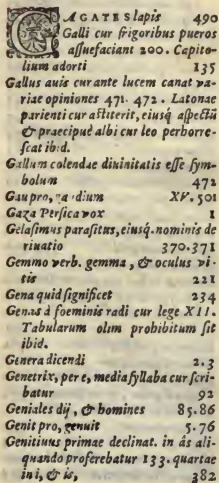 GAGATES lapis 490
Galli cur frigoribus pueros
assuefaciant 200. Capito-
lium adorti 135
Gallus auis cur ante lucem canat va-
riae opiniones 471. 472. Latonae
parienti cur astiterit, eiusq́ aspectũ
& praecipuè albi cur leo perhorre-
scat ibid.
Gallum colendae diuinitatis esse sym-
bolum 472
Gau pro, gaudium XV. 501
Gaza Persica vox 1
Gelasimus parasitus, eiusq́. nominis de
riuatio 370.371
Gemmo verb. gemma, & oculus vi-
tis 221
Gena quid significet 234
Genas à foeminis radi cur lege XII.
Tabularum olim prohibitum sit
ibid.
Genera dicendi 2.3
Genetrix, per e, media syllaba cur scri-
batur 92
Geniales dij, & homines 85.86
Genit pro, genuit 5.76
Genitiuus primae declinat. in ás ali-
quando proferebatur 133. quartae
in i, & is, 382